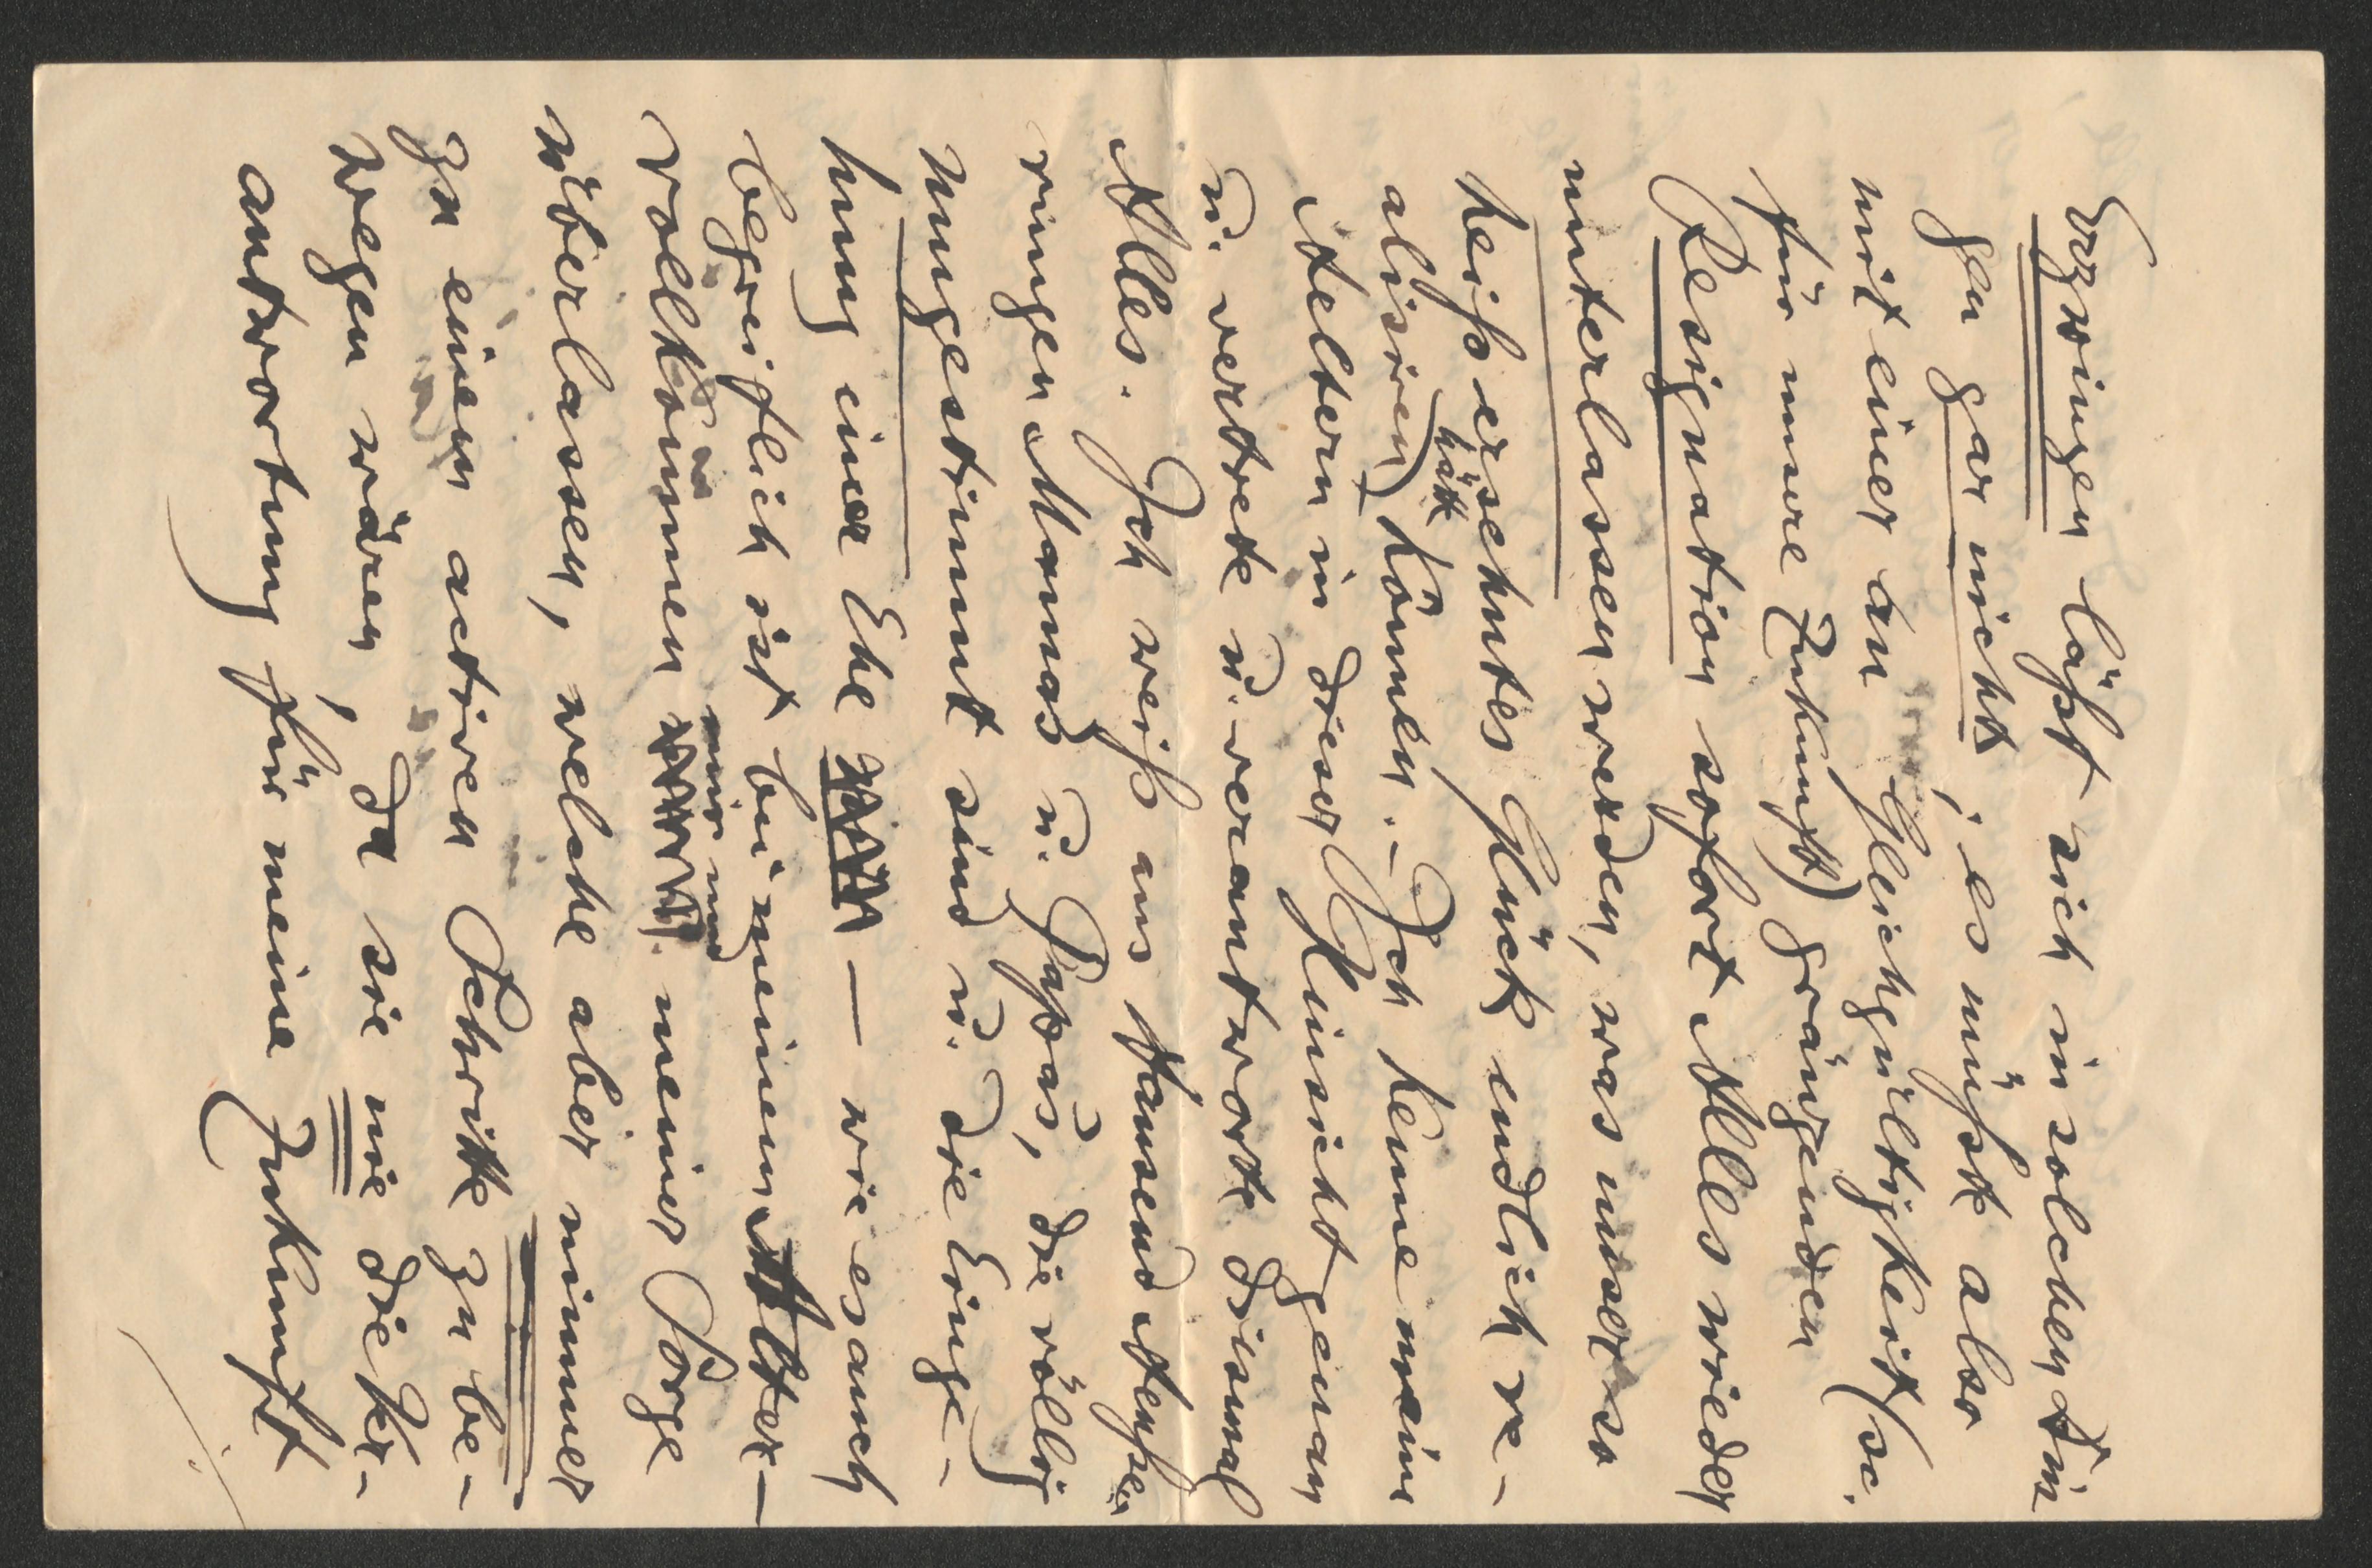 Erzwingen läßt sich in solchen Din-
gen gar nicht; es müßte also
mit einer an Gleichgültigkeit (sc.
für unsre Zukunft) gränzenden
Resignation sofort Alles wieder
unterlassen werden, was unser so
heiß ersehntes Glück endlich re-
alisiren hätte können. Ich kenne meine
Aeltern in dieser Hinsicht genau
u. vertrete u. verantworte diesmal
Alles. Ich weiß aus tausend Aeußer
ungen Mamas u. Papas, die völlig
umgestimmt sind u. die Einge-
hung einer Ehe — wie es auch
begreiflich ist bei meinem Alter —
vollkommen mir und meiner Sorge
überlassen, welche aber nimmer
zu einem activen Schritte zu be-
wegen wären, da sie nie die Ver-
antwortung für meine Zukunft